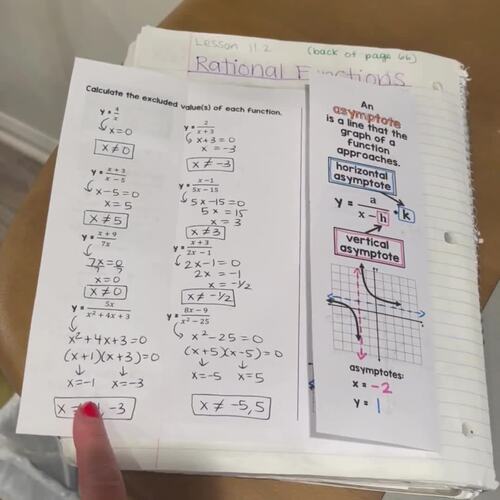 Lesson 11.2 (back of page 66)
Rational Functions
Calculate the excluded value(s) of each function.
y = 4/x
x=0
x ≠ 0
y = x+3/x−5
x−5=0
x=5
x ≠ 5
y = x+9/7x
7x=0
7 7
x=0
x ≠ 0
y = 5x/x²+4x+3
x²+4x+3=0
(x+1)(x+3)=0
x=-1 x=-3
x ≠ , -3
y = 2/x+3
x+3=0
x = -3
x ≠ -3
y = x−1/5x−15
5x-15=0
5x = 15
x = 3
x ≠ 3
y = x+3/2x−1
2x-1=0
2x = -1
x = -1/2
x ≠ -1/2
y = 8x−9/x²−25
x²-25=0
(x+5)(x-5)=0
x=-5 x=5
x ≠ -5,5
An
asymptote
is a line that the
graph of a
function
approaches.
horizontal
asymptote
y = a/x − h + k
vertical
asymptote
asymptotes:
x = -2
y = 1